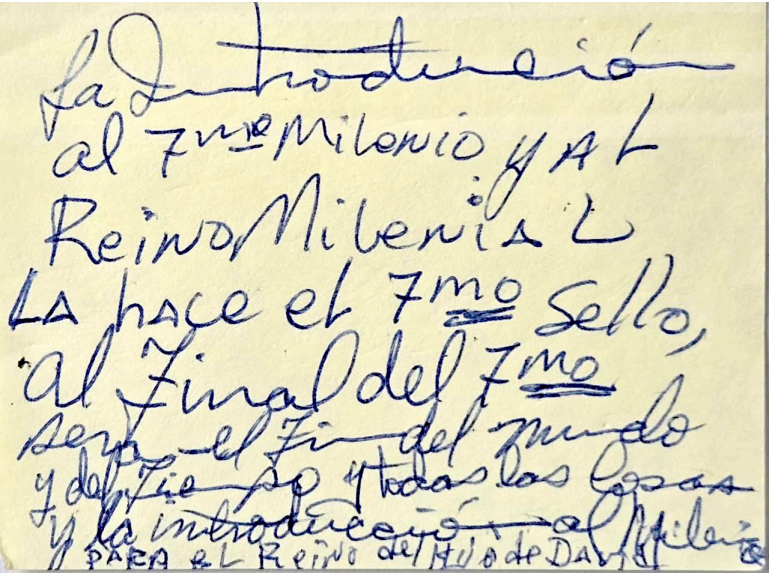 La Introducción
al 7mo Milenio y AL
Reino MileniAL
LA hACe el 7mo Sello,
al Final del 7mo
será el Fin del mundo
y del Tiempo y todas las cosas
y la introducción al Milenio
PARA el Reino del Hijo de David